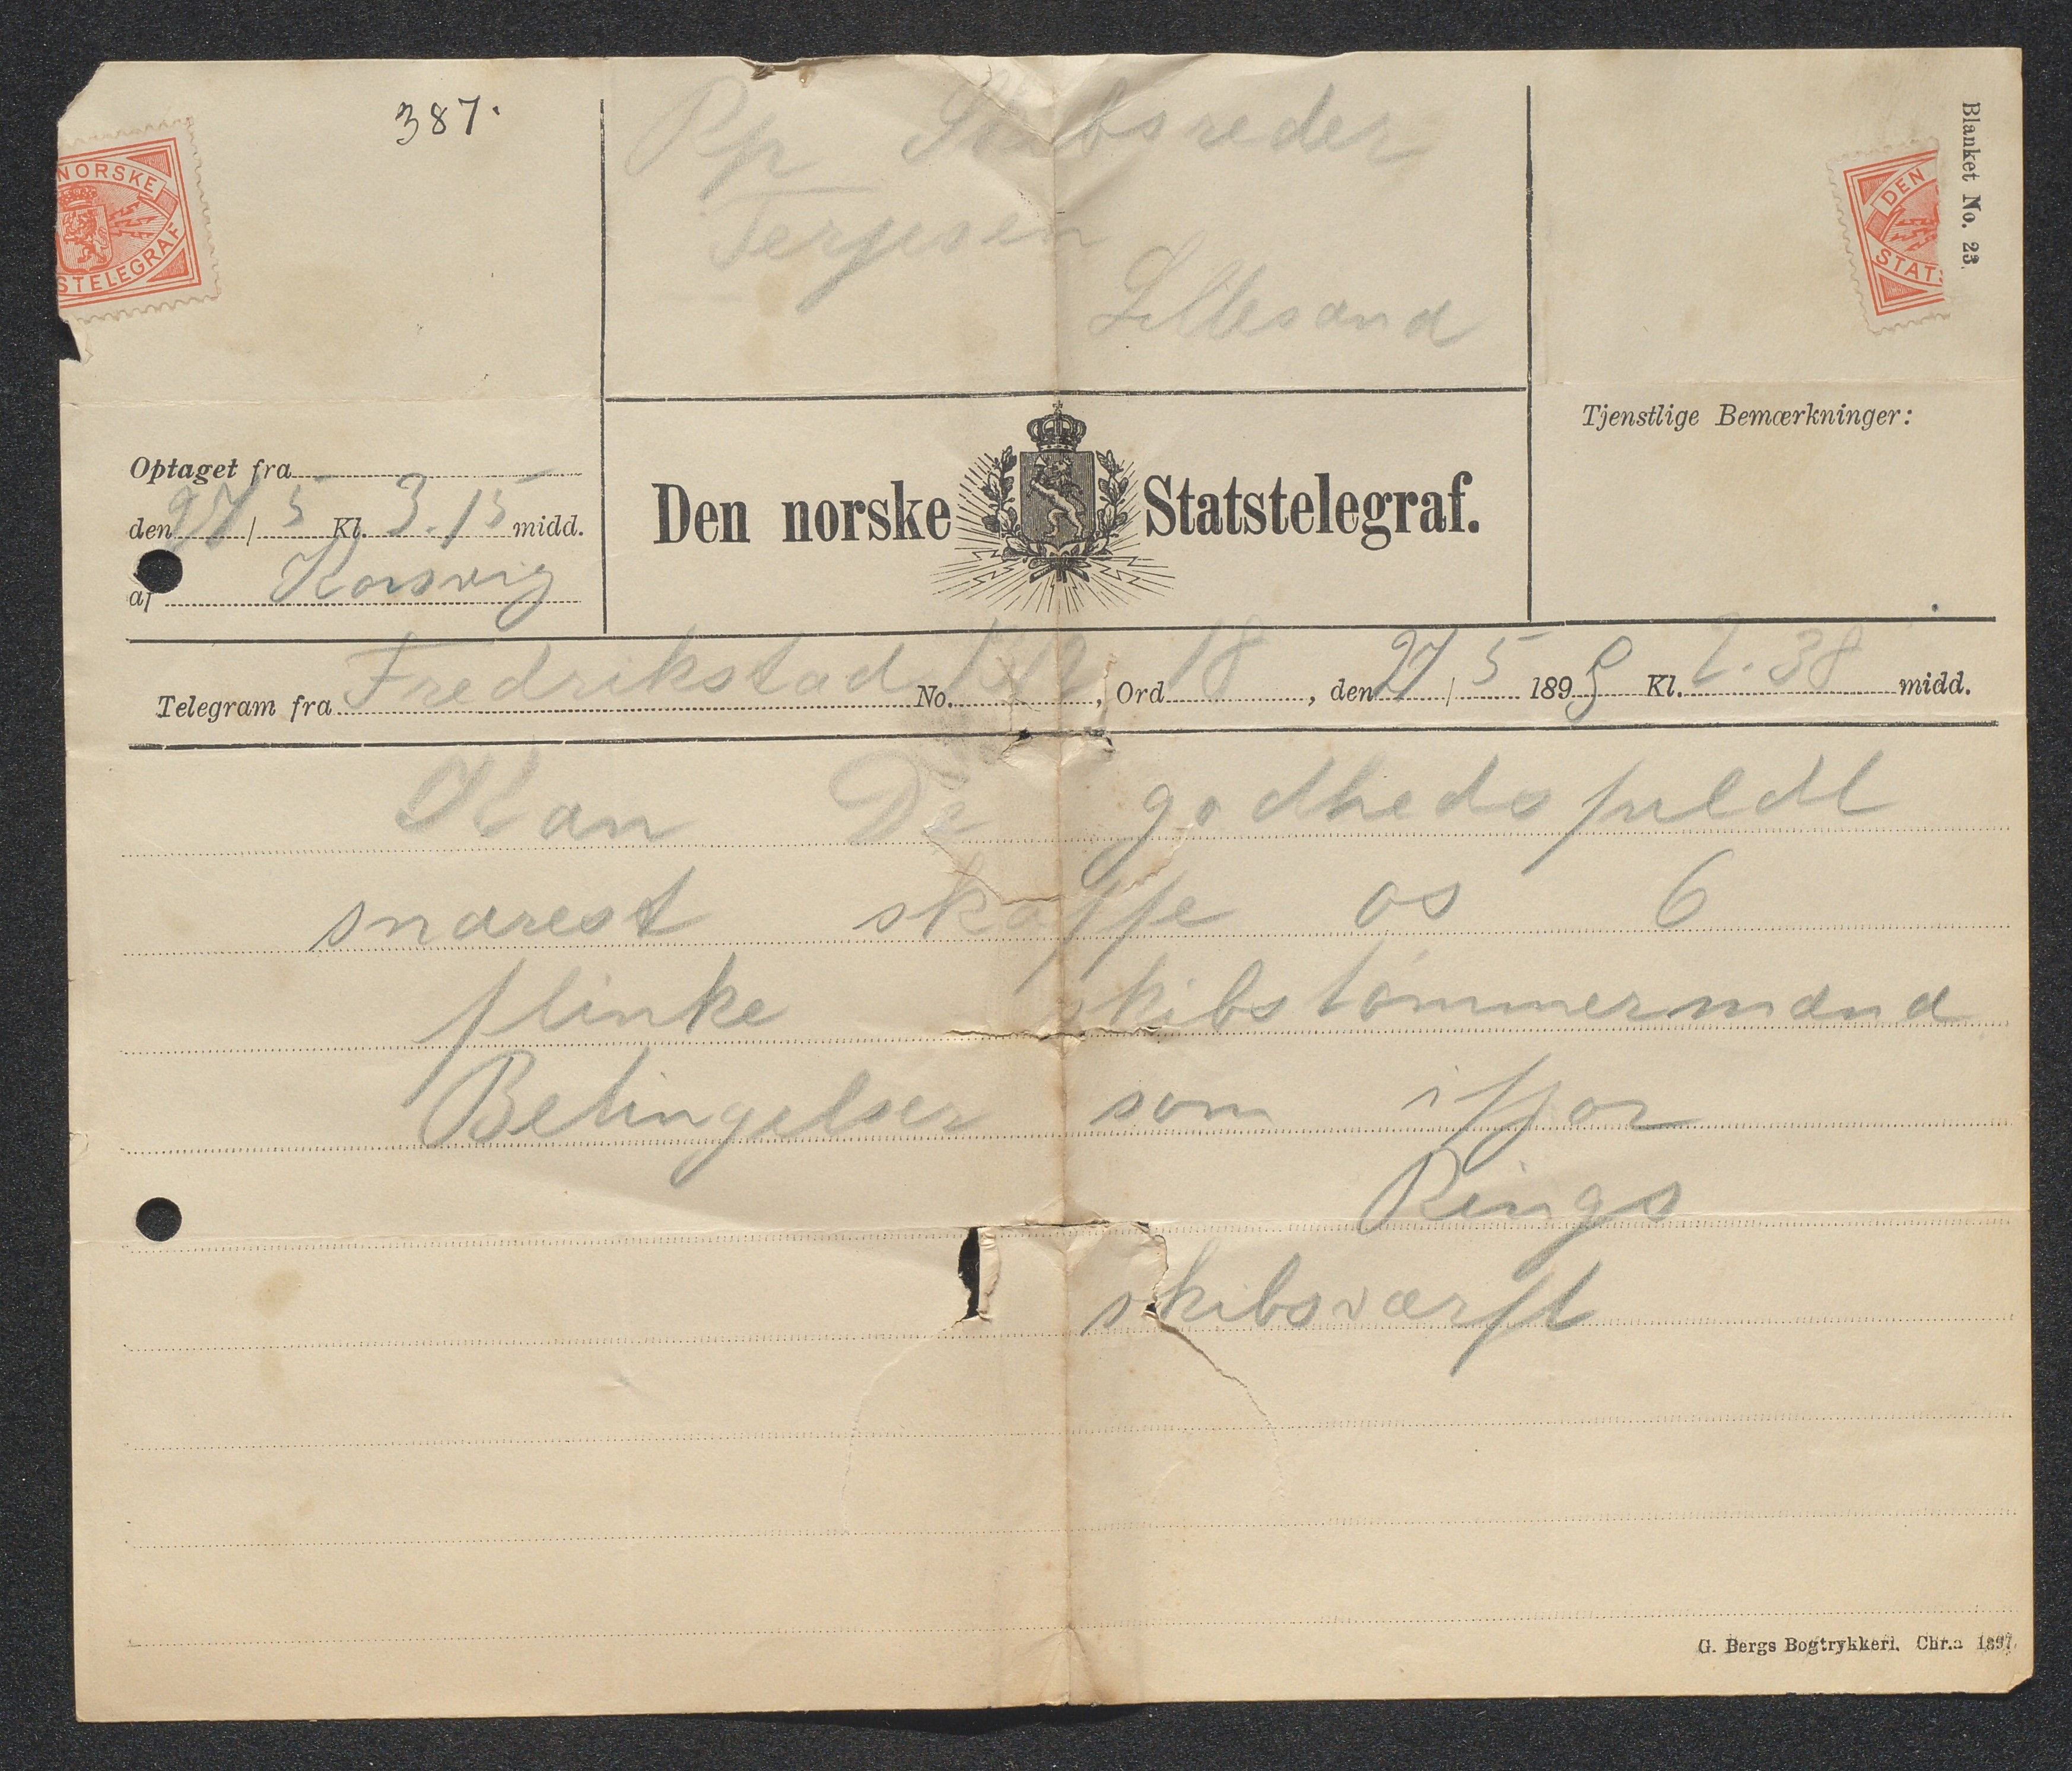 387.
Rp Skibsreder
Terjesen
Lillesand
Blanket No. 23.
NORSKE
STELEGRAF
DEN
STATS
Optaget fra
den 27 / 5 Kl. 3.15 midd.
af Korsvig
Den norske Statstelegraf.
Tjenstlige Bemærkninger:
Telegram fra Fredrikstad No. , Ord 18 , den 27 / 5 1899 Kl. 2.38 midd.
Kan De godhedsfuldt
snarest skaffe os 6
flinke skibstømmermænd
Betingelser som ifjor
Rings
skibsværft
G. Bergs Bogtrykkeri. Chr.a 1897.